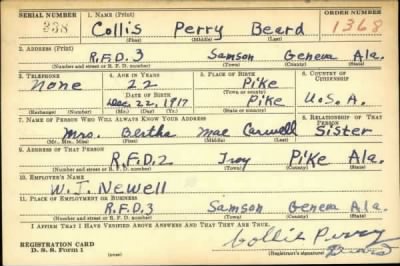 SERIAL NUMBER 1. NAME (Print) ORDER NUMBER
238 Collis Perry Beard 1368
(First) (Middle) (Last)
2. ADDRESS (Print)
R.F.D. 3 Samson Geneva Ala.
(Number and street or R. F. D. number) (Town) (County) (State)
3. TELEPHONE 4. AGE IN YEARS 5. PLACE OF BIRTH 6. COUNTRY OF CITIZENSHIP
None 22 Pike
DATE OF BIRTH (Town or county)
Dec. 22, 1917 Pike U.S.A.
(Exchange) (Number) (Mo.) (Day) (Yr.) (State or country)
7. NAME OF PERSON WHO WILL ALWAYS KNOW YOUR ADDRESS 8. RELATIONSHIP OF THAT PERSON
Mrs. Bertha Mae Carwell Sister
(Mr., Mrs., Miss) (First) (Middle) (Last)
9. ADDRESS OF THAT PERSON
R.F.D. 2 Troy Pike Ala.
(Number and street or R. F. D. number) (Town) (County) (State)
10. EMPLOYER'S NAME
W. J. Newell
11. PLACE OF EMPLOYMENT OR BUSINESS
R.F.D. 3 Samson Geneva Ala.
(Number and street or R. F. D. number) (Town) (County) (State)
I AFFIRM THAT I HAVE VERIFIED ABOVE ANSWERS AND THAT THEY ARE TRUE.
Collis Perry
REGISTRATION CARD Beard
D. S. S. Form 1 (over) (Registrant's signature)